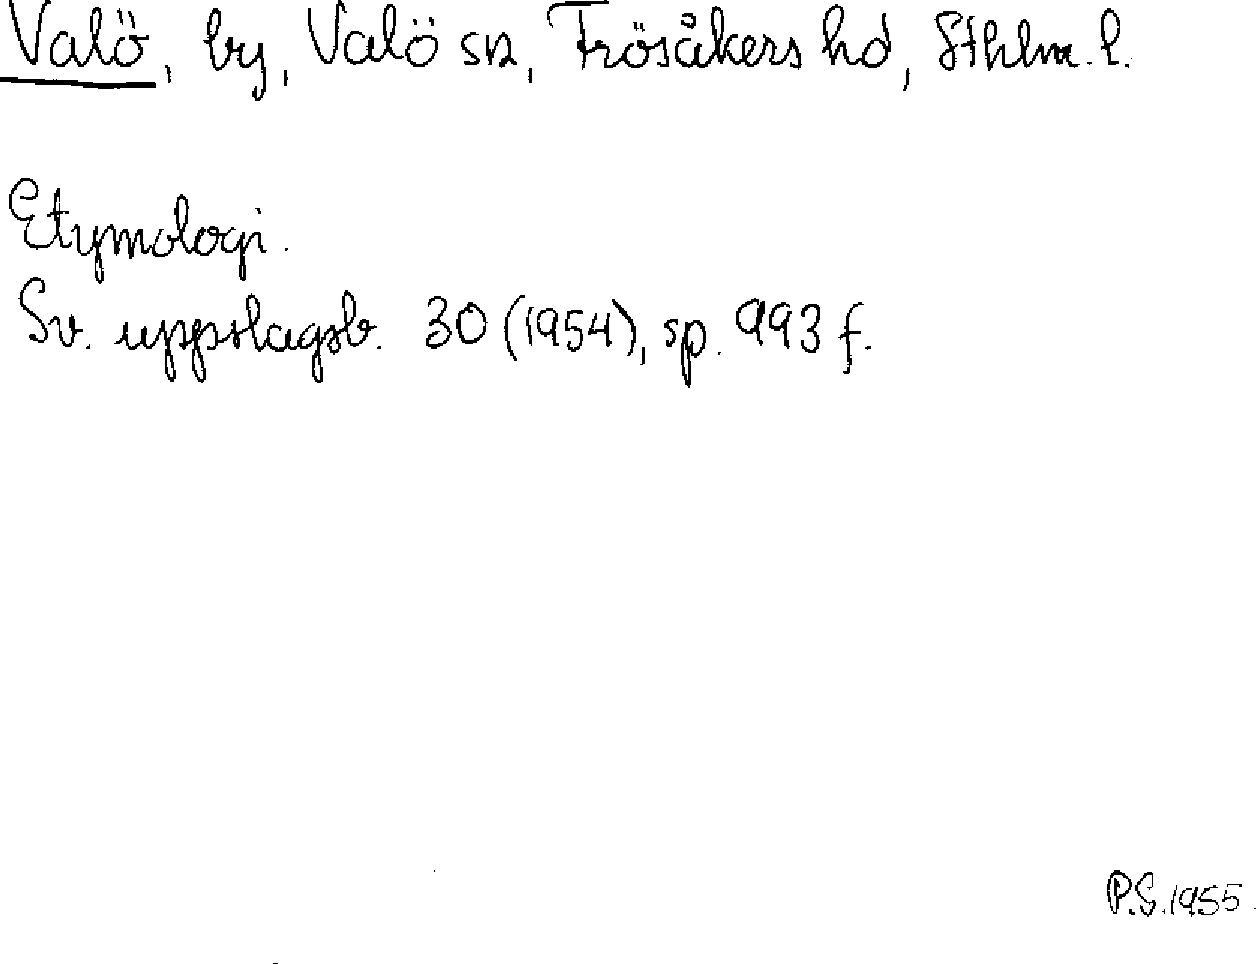 Valö, by, Valö sn, Frösåkers hd, Sthlm. l.
Etymologi.
Sv. uppslagsb. 30 (1954), sp. 993 f.
P.S. 1955.